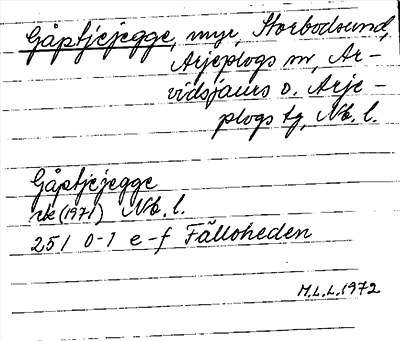 Gåptjejegge, myr, Storbodsund,
Arjeplogs sn, Ar-
vidsjaurs o. Arje-
plogs tg, Nb. l.
Gåptjejegge
rk (1971) Nb. l.
25 I 0-1 e-f Fälloheden
M.L.L. 1972